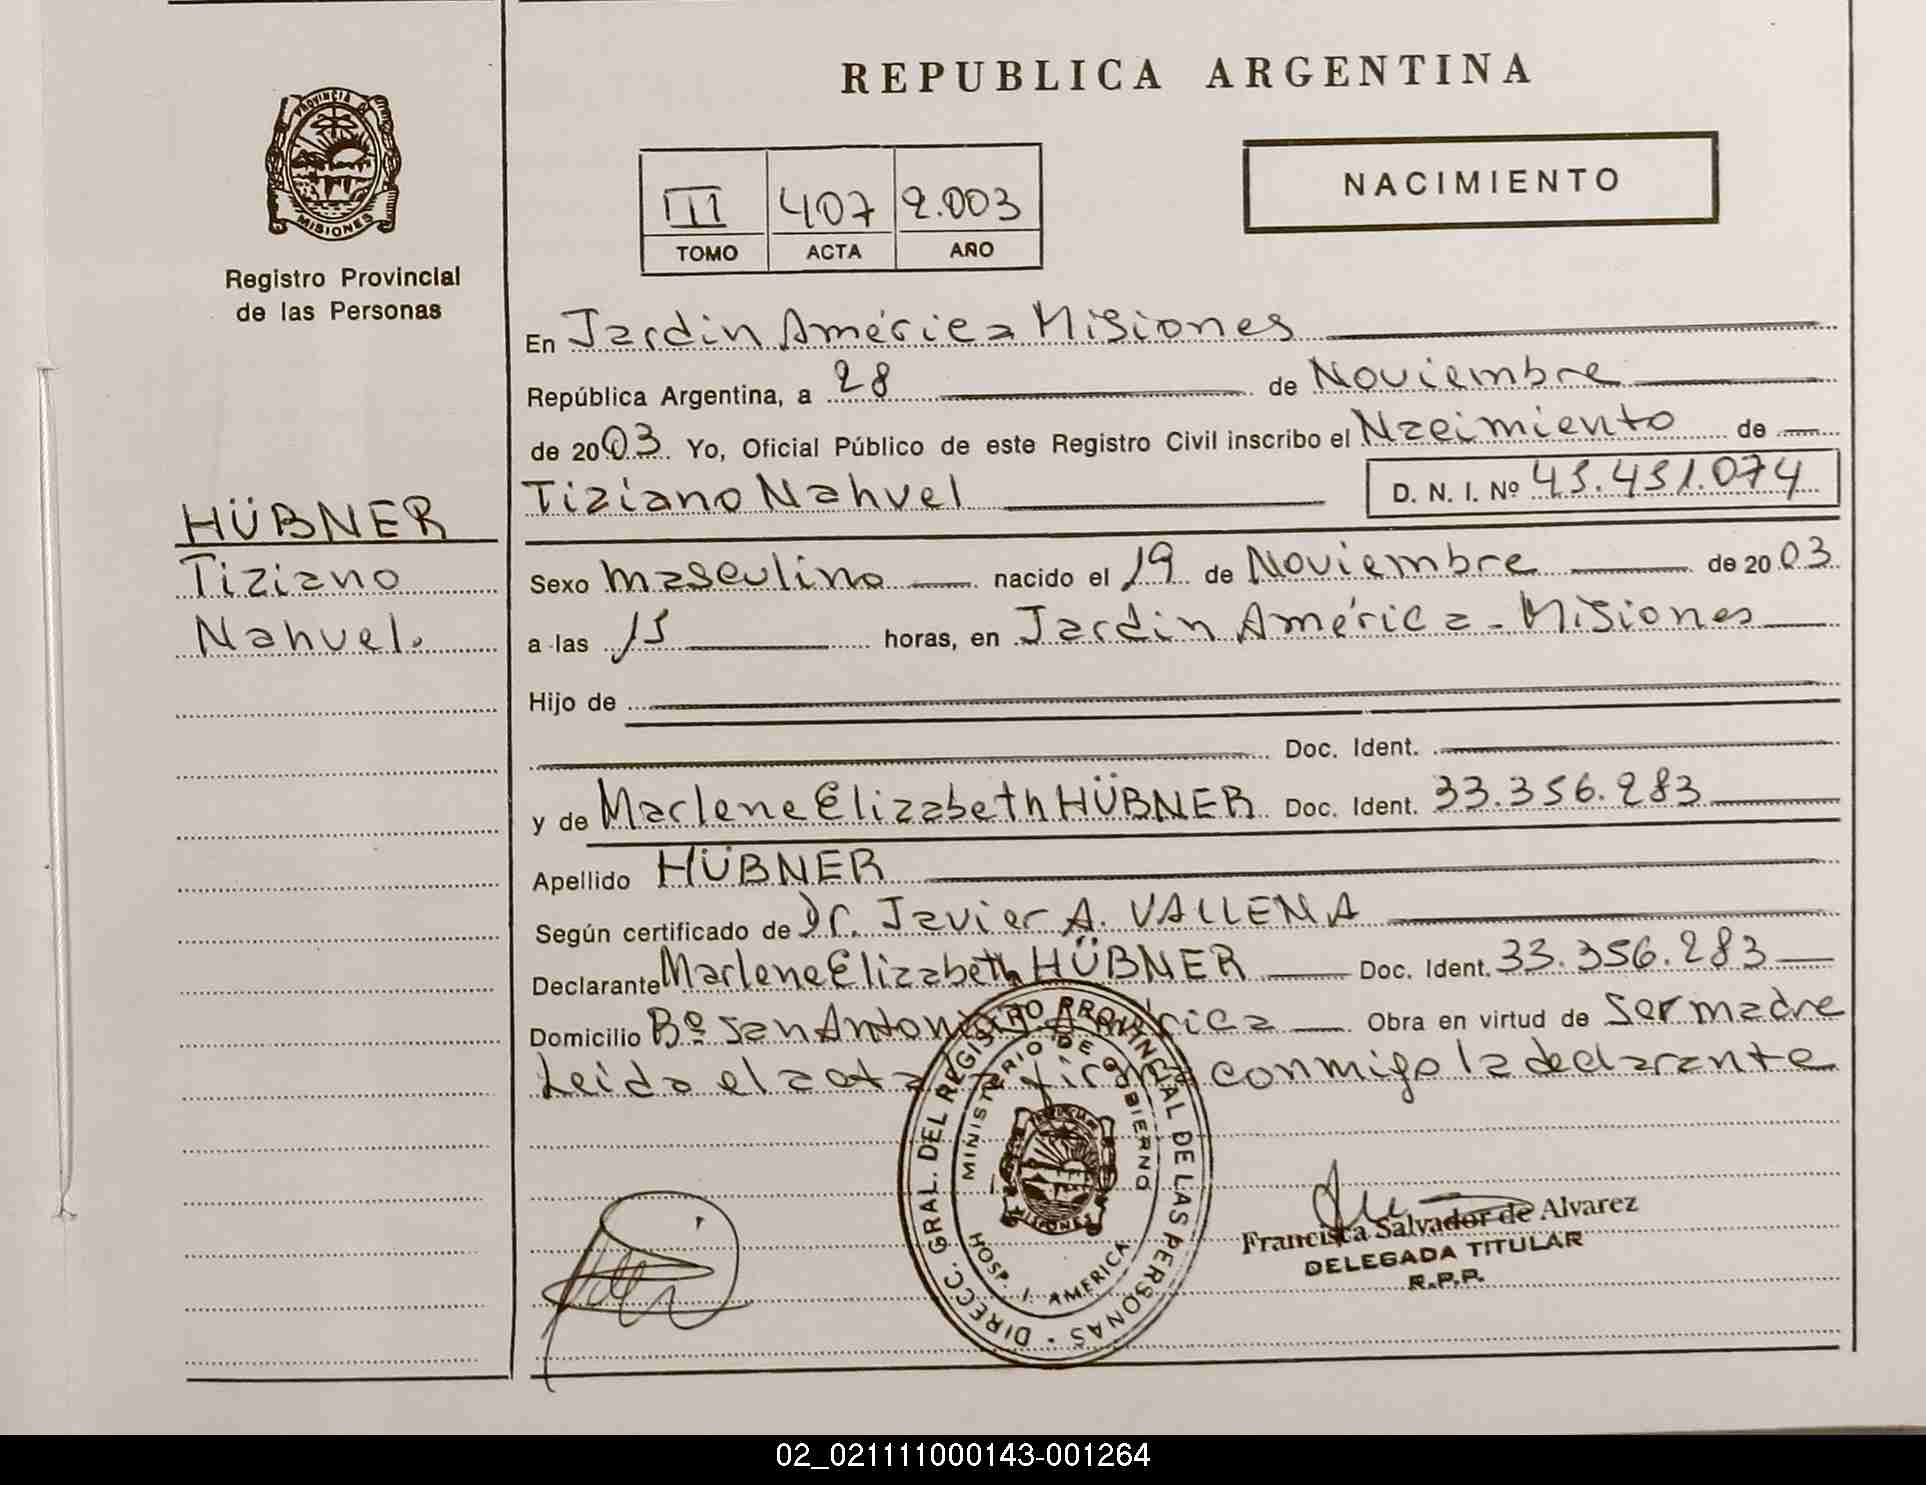 REPUBLICA ARGENTINA
PROVINCIA DE
MISIONES
Registro Provincial
de las Personas
III 407 2.003
TOMO ACTA AÑO
NACIMIENTO
En Jardin América Misiones
República Argentina, a 28 de Noviembre
de 2003 Yo, Oficial Público de este Registro Civil inscribo el Nacimiento de
Tiziano Nahuel D. N. I. Nº
HÜBNER
Tiziano
Nahuel.
Sexo masculino nacido el 19 de Noviembre de 2003
a las horas, en Jardin América - Misiones
Hijo de
Doc. Ident.
y de Marlene Elizabeth HÜBNER Doc. Ident. 33.356.283
Apellido HÜBNER
Según certificado de Dr. Javier A.
Declarante Marlene Elizabeth HÜBNER Doc. Ident. 33.356.283
Domicilio Bº San Antonio Obra en virtud de Ser madre
Leida el acta firma conmigo la declarante
DIRECC. GRAL. DEL REGISTRO PROVINCIAL DE LAS PERSONAS
MINISTERIO DE GOBIERNO
HOSP. J. AMERICA
MISIONES
Francisca Salvador de Alvarez
DELEGADA TITULAR
R.P.P.
02_021111000143-001264